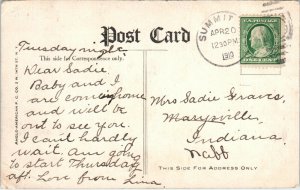 Post Card
SUMMIT
APR 20
1230 PM
1910
U.S. POSTAGE
ONE CENT
This side for Correspondence only.
Tuesday night.
Dear Sadie,
Baby and I
are coming home
and will be
out to see you.
I can't hardly
wait. am going
to start Thursday
aft. Love from Lina
Mrs Sadie Graves,
Maysville
Indiana
THIS SIDE FOR ADDRESS ONLY